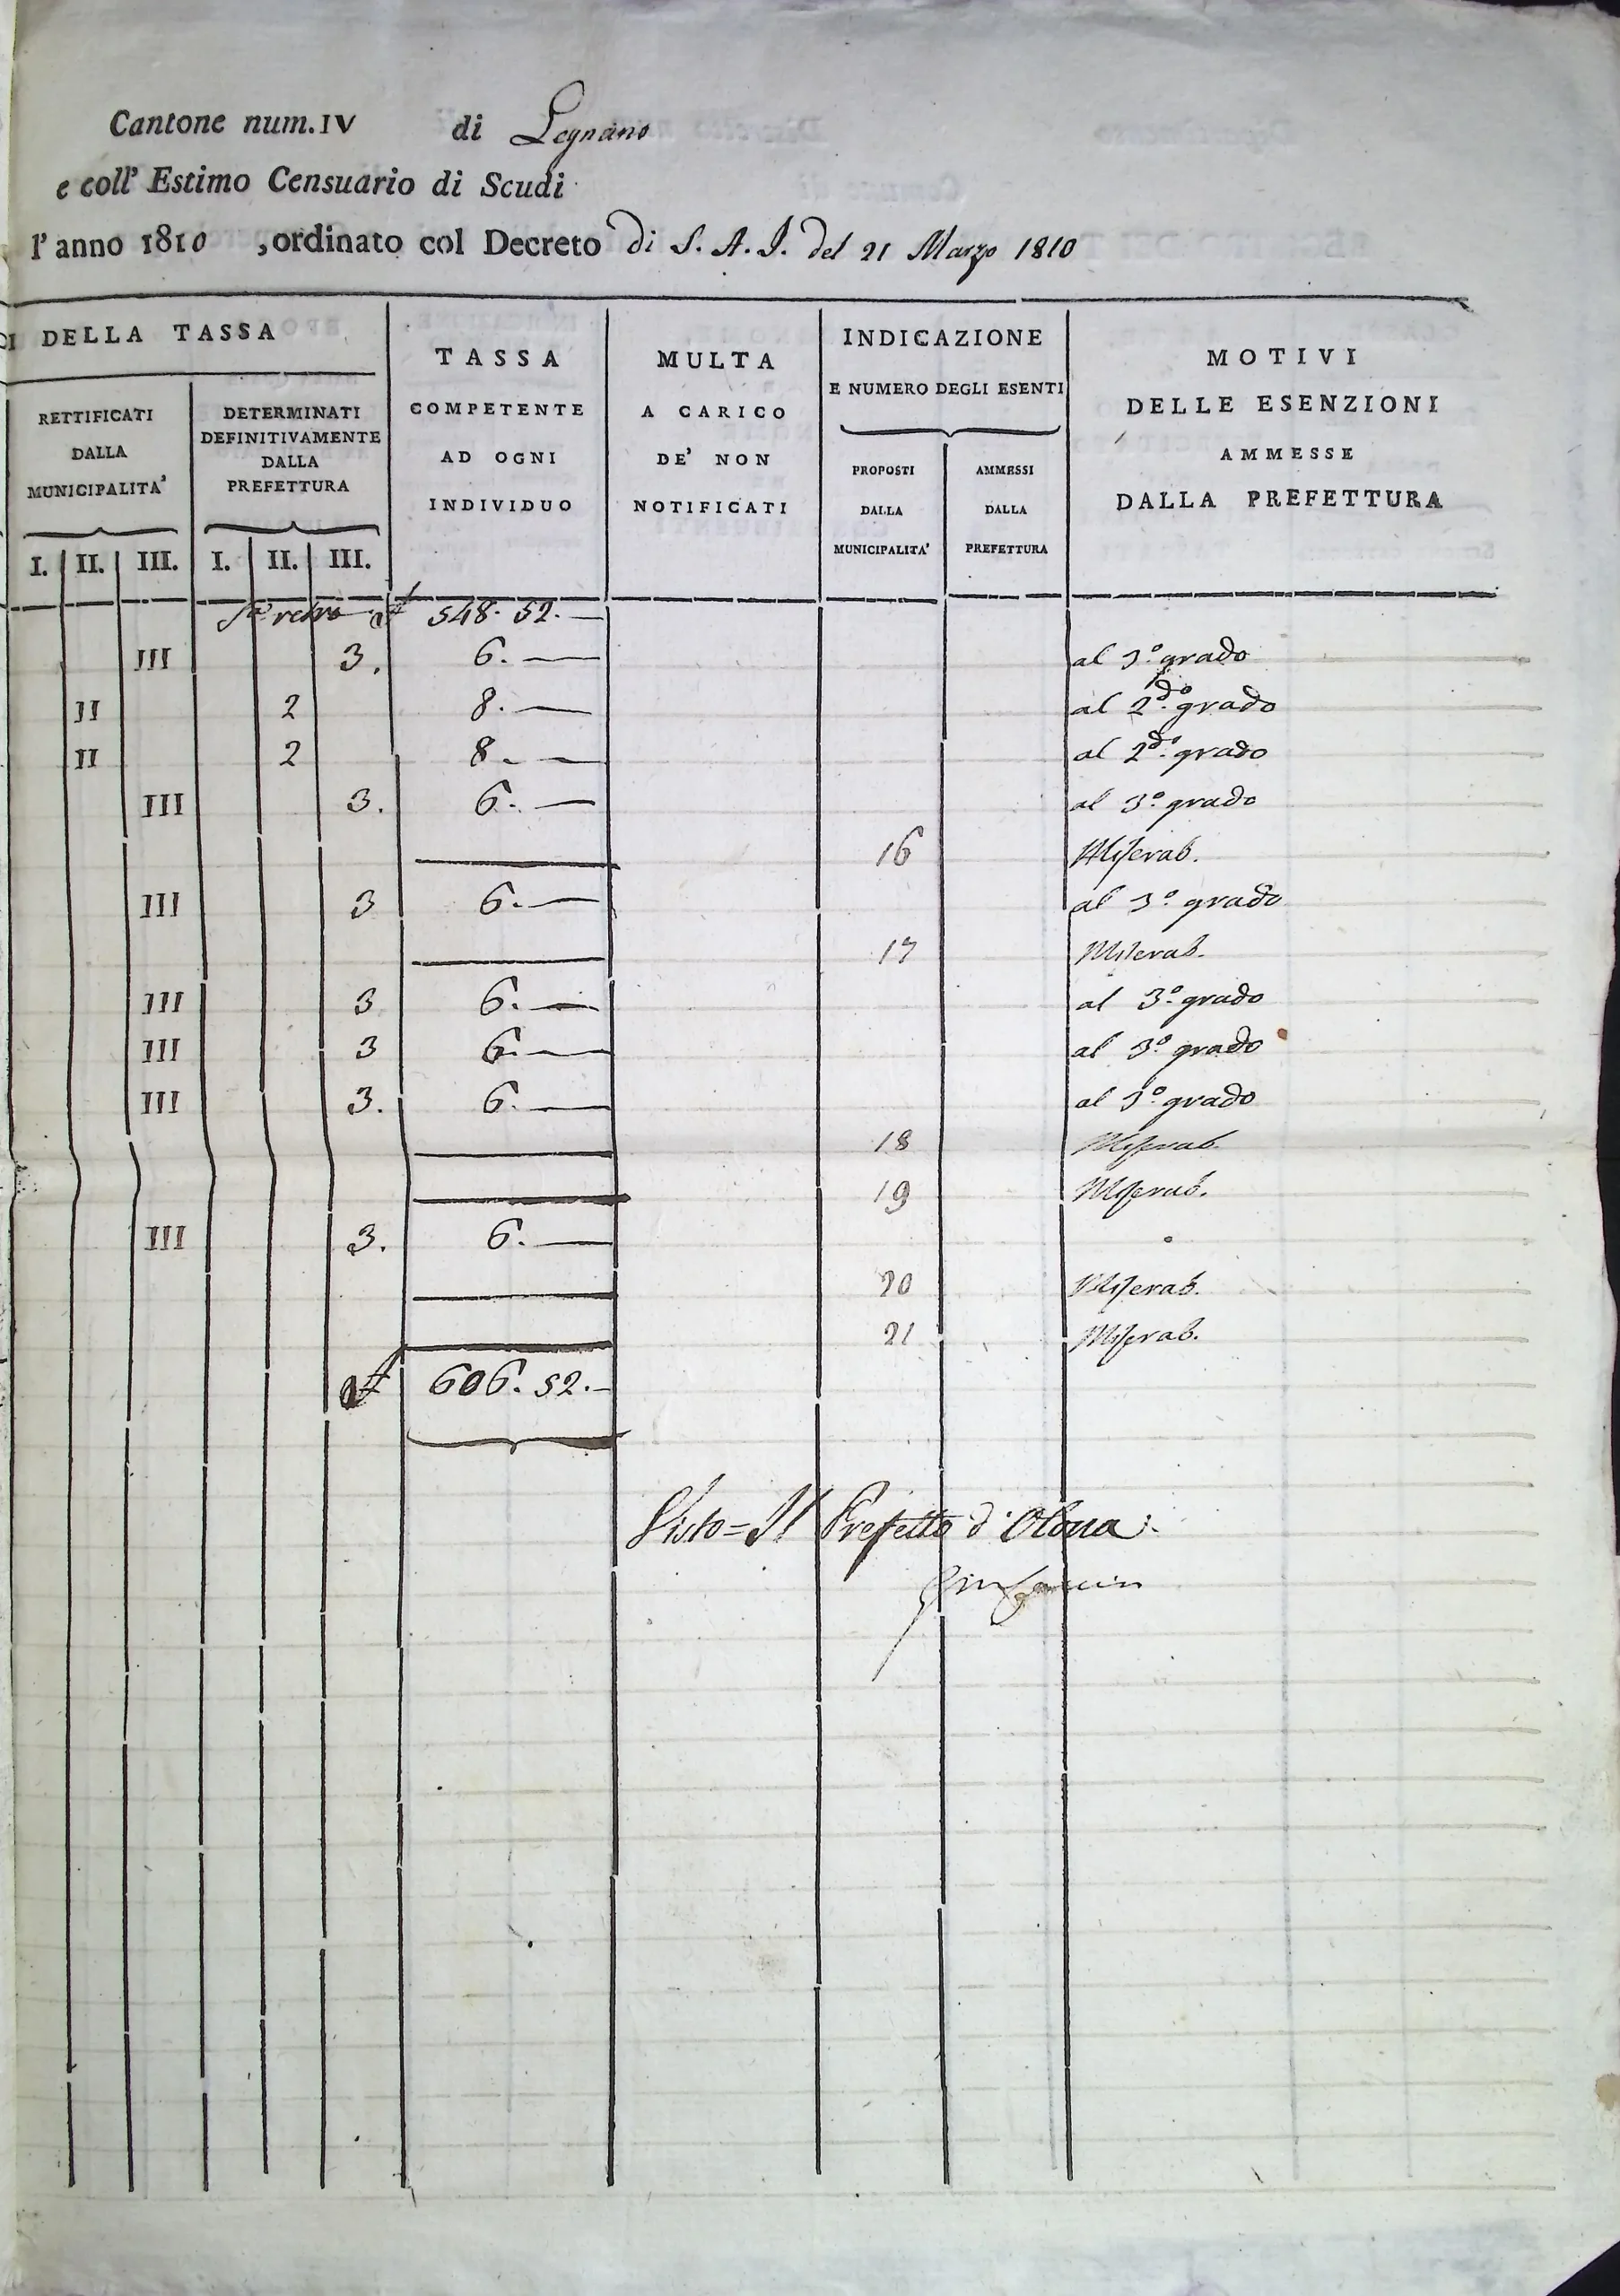 Cantone num. IV di Legnano
e coll' Estimo Censuario di Scudi
l'anno 1810 , ordinato col Decreto di S. A. I. del 21 Marzo 1810
DELLA TASSA
RETTIFICATI DALLA MUNICIPALITA'
DETERMINATI DEFINITIVAMENTE DALLA PREFETTURA
I. II. III. I. II. III.
TASSA COMPETENTE AD OGNI INDIVIDUO
MULTA A CARICO DE' NON NOTIFICATI
INDICAZIONE E NUMERO DEGLI ESENTI
PROPOSTI DALLA MUNICIPALITA'
AMMESSI DALLA PREFETTURA
MOTIVI DELLE ESENZIONI AMMESSE DALLA PREFETTURA
retro 548. 52. —
III 3. 6. — al 3.º grado
II 2 8. — al 2.do grado
II 2 8. — al 2.do grado
III 3. 6. — al 3.º grado
16 Miserab.
III 3 6. — al 3.º grado
17 Miserab.
III 3 6. — al 3.º grado
III 3 6. — al 3.º grado
III 3. 6. — al 3.º grado
18 Miserab.
19 Miserab.
III 3. 6. —
20 Miserab.
21 Miserab.
606. 52. —
Visto = Il Prefetto d'Olona